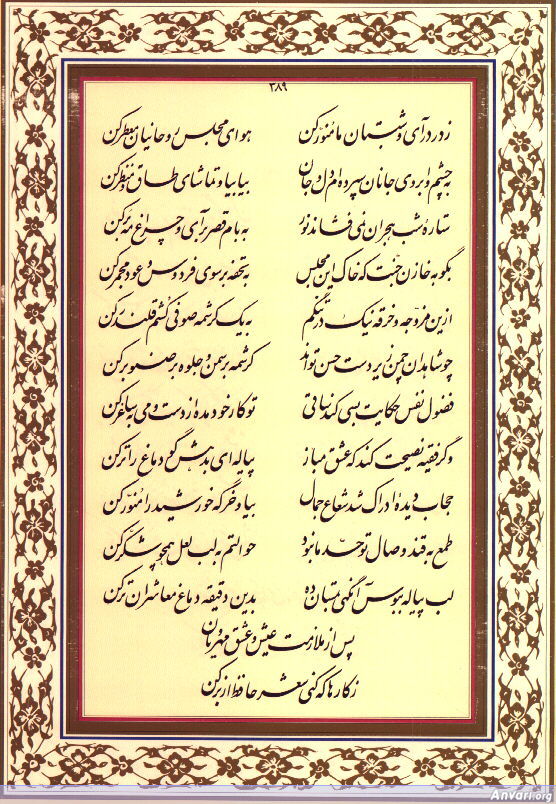 ۳۸۹
ز در درآی و شبستان ما منور کن هوای مجلس روحانیان معطر کن
به چشم و ابروی جانان سپرده‌ام دل و جان بیا بیا و تماشای طاق و منظر کن
ستاره شب هجران نمی‌فشاند نور به بام قصر برآی و چراغ مه برکن
بگو به خازن جنت که خاک این مجلس به تحفه بر سوی فردوس و عود مجمر کن
ازین مزوجه و خرقه نیک در تنگم به یک کرشمه صوفی کشم قلندر کن
چو شاهدان چمن زیردست حسن تواند کرشمه بر سمن و جلوه بر صنوبر کن
فضول نفس حکایت بسی کند ساقی تو کار خود مده از دست و می به ساغر کن
وگر فقیه نصیحت کند که عشق مباز پیاله‌ای بدهش گو دماغ را تر کن
حجاب دیده ادراک شد شعاع جمال بیا و خرگه خورشید را منور کن
طمع به قند وصال تو حد ما نبود حوالتم به لب لعل همچو شکر کن
لب پیاله ببوس آنگهی بمستان ده بدین دقیقه دماغ معاشران تر کن
پس از ملازمت عیش و عشق مهرویان
ز کارها که کنی شعر حافظ از بر کن
Anvari.org